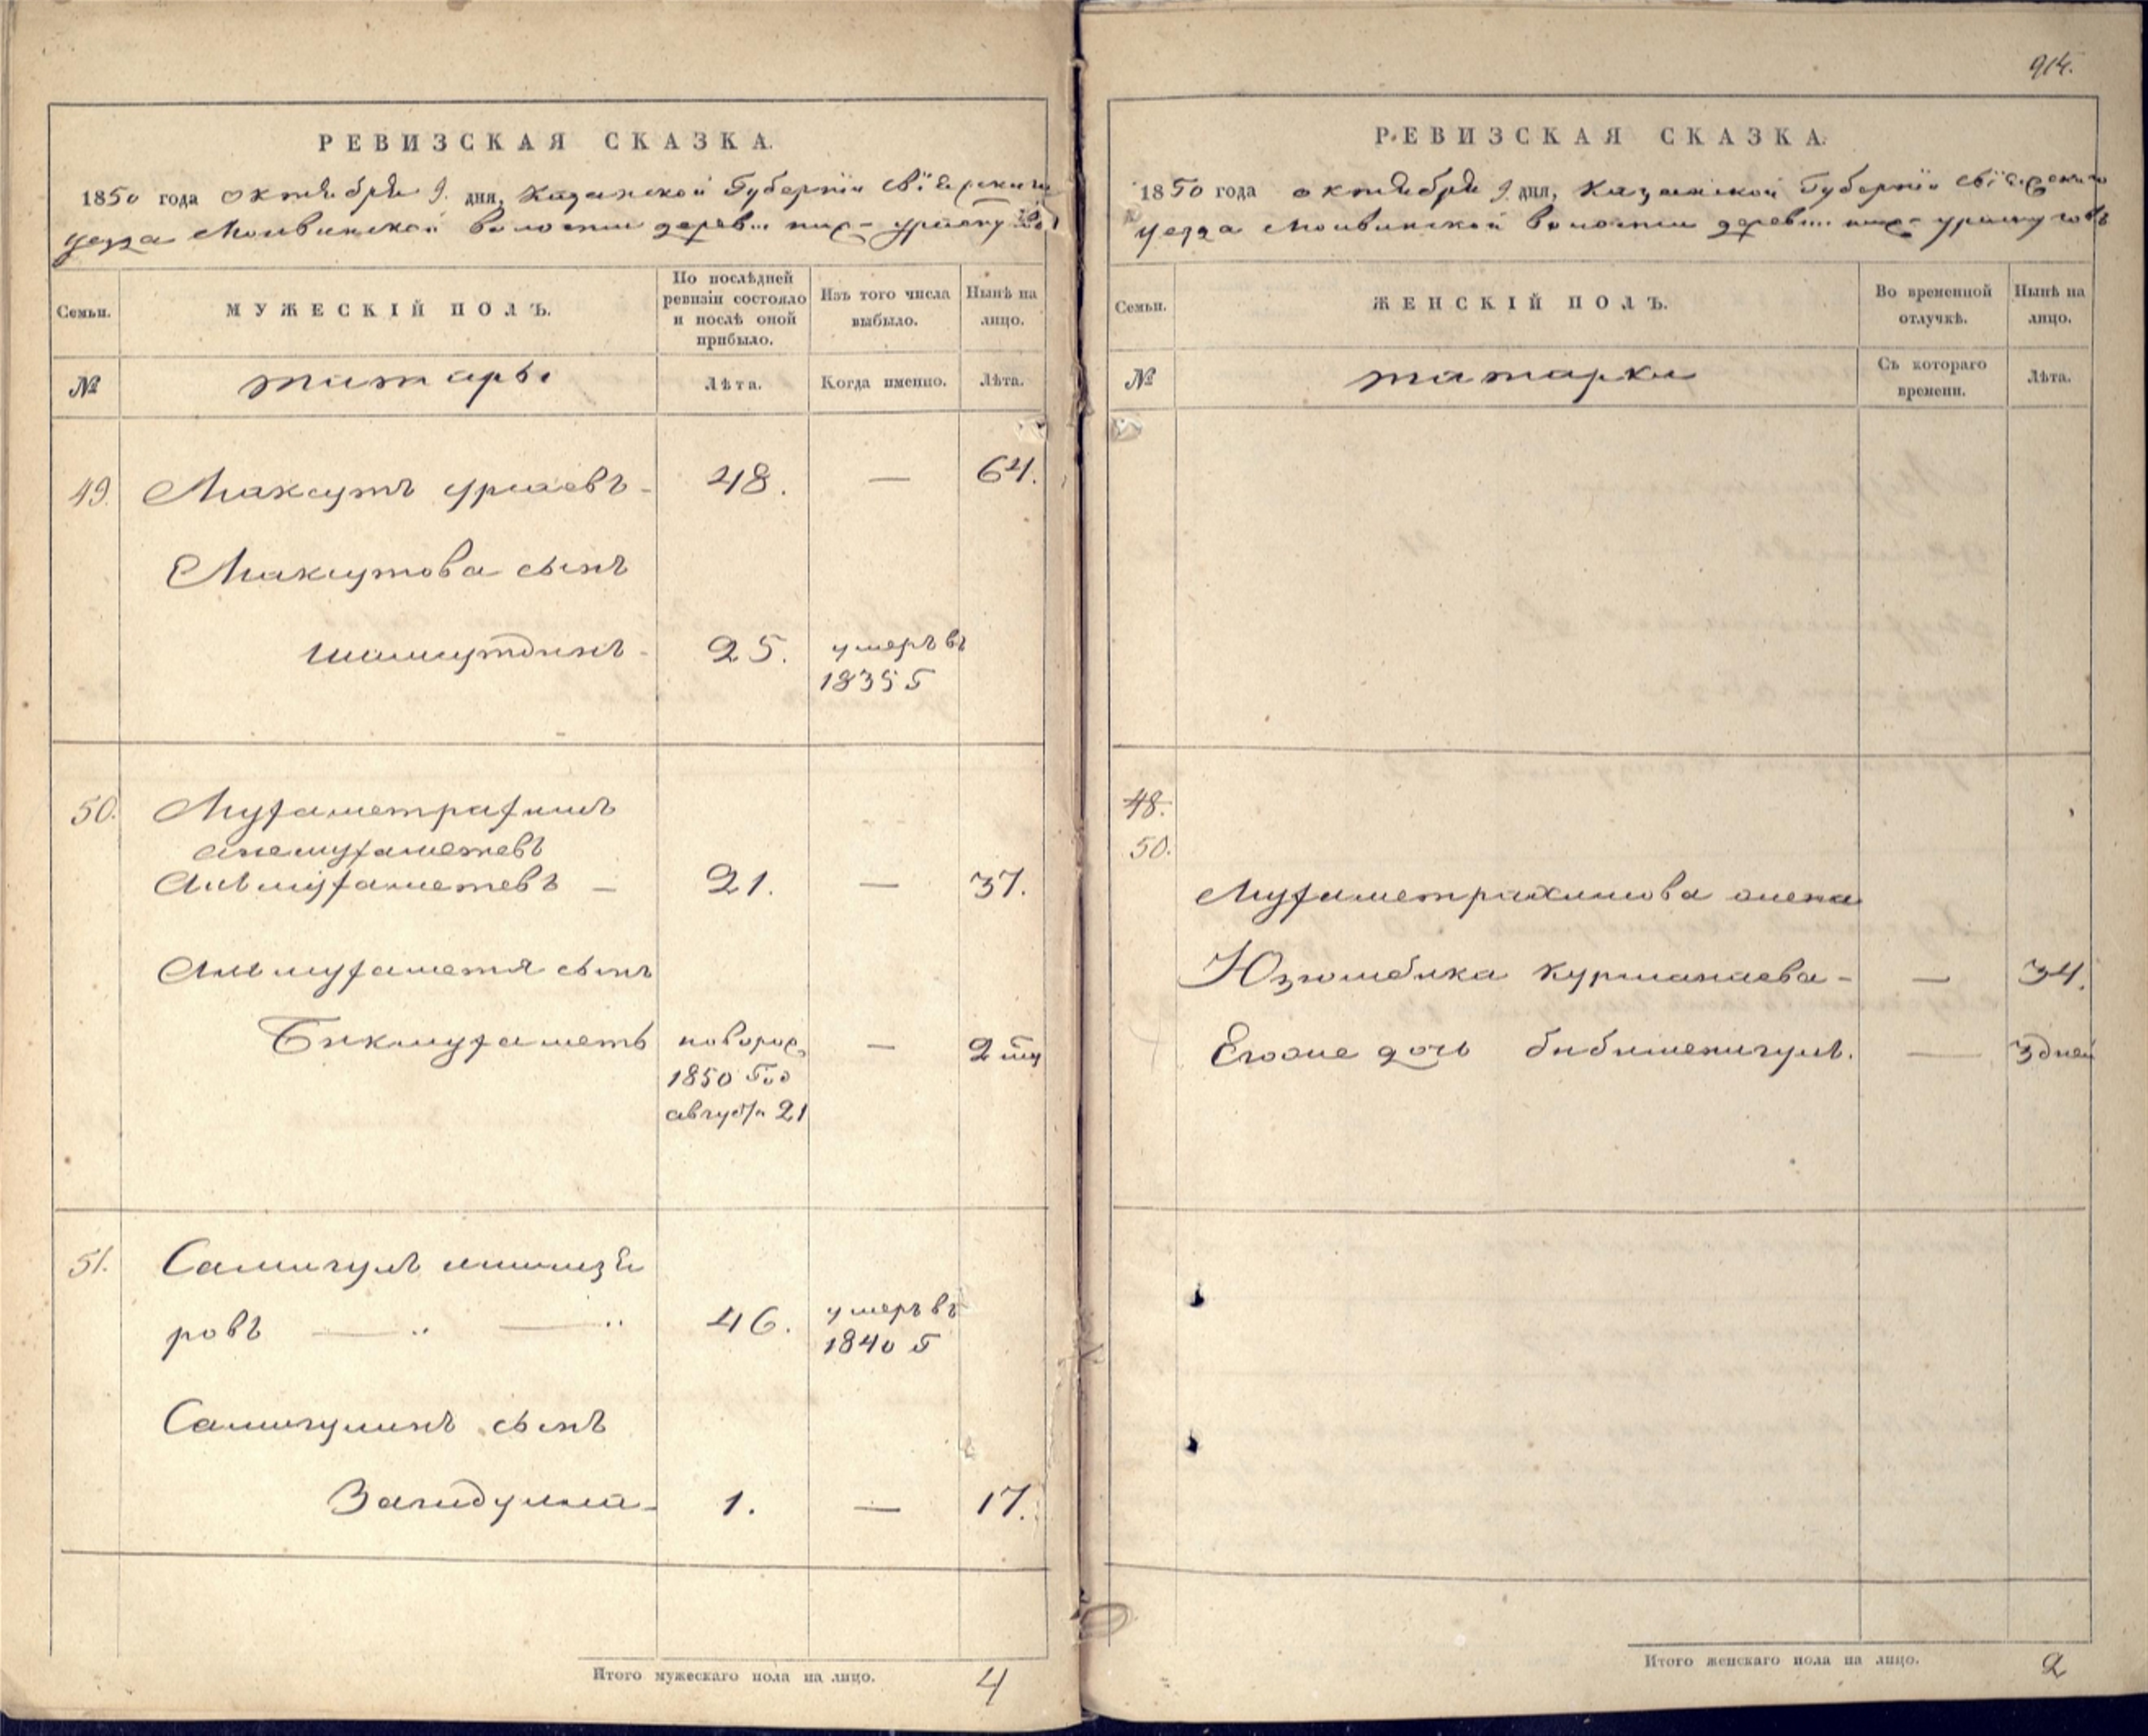 РЕВИЗСКАЯ СКАЗКА.
1850 года октября 9. дня, Казанской Губернiи Свiяжскаго
уезда Молвинской волости дерев...
Семьи.
МУЖЕСКІЙ ПОЛЪ.
По послѣдней ревизіи состояло и послѣ оной прибыло.
Изъ того числа выбыло.
Нынѣ на лицо.
№
татары
Лѣта.
Когда именно.
Лѣта.
49. Максутъ 48. — 64.
Максутова сынъ
25. умеръ въ
1835 г
50. Мухаметрахимъ
Алемухаметевъ
Алимухаметевъ — 21. — 37.
Алимухаметя сынъ
Бикмухаметь новорож 1850 год август 21 — 2
51. Самигулъ
ровъ 46. умеръ въ
1840 г
Самигулинъ сынъ
Загидулла 1. — 17.
Итого мужескаго пола на лицо. 4
914.
РЕВИЗСКАЯ СКАЗКА.
1850 года октября 9 дня, Казанской Губернiи Свiяжскаго
уезда Молвинской волости дерев...
Семьи.
ЖЕНСКІЙ ПОЛЪ.
Во временной отлучкѣ.
Нынѣ на лицо.
№
татарки
Съ котораго времени.
Лѣта.
48.
50.
Мухаметрахимова жена
Юзюмбика Курманаева — — 34.
Егоже дочь — 3 дней
Итого женскаго пола на лицо. 2